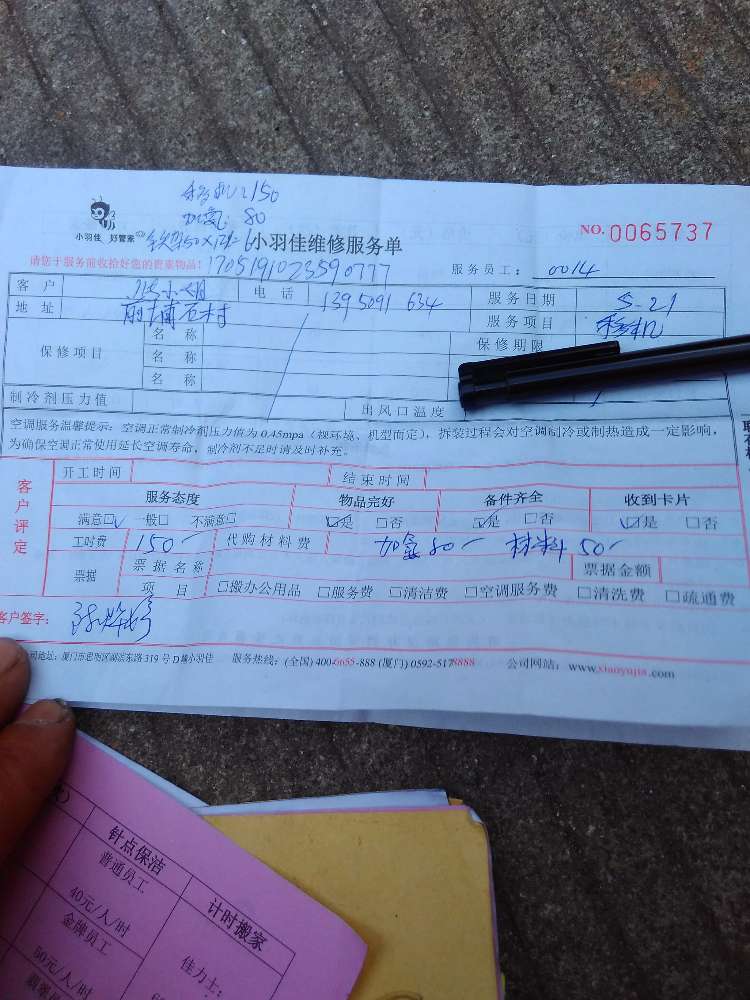 移机:150
加氟:80
小羽佳 好管家
小羽佳维修服务单
NO.0065737
请您于服务前收拾好您的贵重物品!
服务员工: 0014
客 户 电 话 服务日期 5-21
地 址 服务项目 移机
保修项目 名 称 保修期限
名 称
名 称
制冷剂压力值 出风口温度
空调服务温馨提示:空调正常制冷剂压力值为0.45mpa(视环境、机型而定),拆装过程会对空调制冷或制热造成一定影响,
为确保空调正常使用延长空调寿命,制冷剂不足时请及时补充。
客户评定
开工时间 结束时间
服务态度 物品完好 备件齐全 收到卡片
满意☑ 一般□ 不满意□ ☑是 □否 ☑是 □否 ☑是 □否
工时费 150 代购材料费 加氟80 材料50
票据 票据名称 票据金额
项 目 □搬办公用品 □服务费 □清洁费 □空调服务费 □清洗费 □疏通费
客户签字:
司地址:厦门市思明区湖滨东路319号D幢小羽佳 服务热线:(全国)400-6655-888 (厦门)0592-5178888 公司网站:www.xiaoyujia.com
针点保洁
普通员工
计时搬家
40元/人/时
金牌员工
佳力士:
50元/人/时